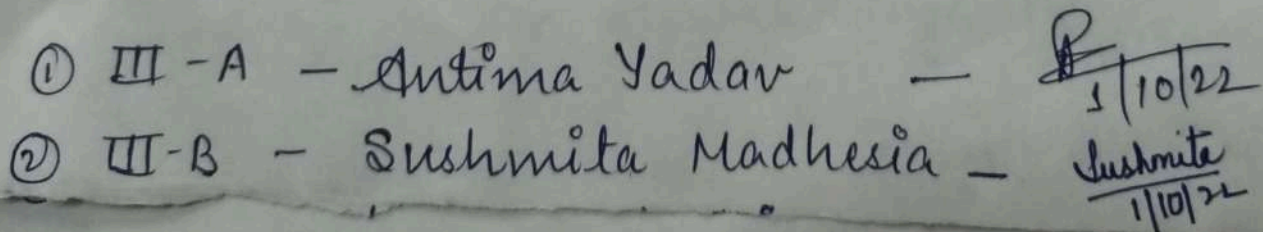 ① III - A - Antima Yadav - 1/10/22
② III - B - Sushmita Madhesia - Sushmita
1/10/22